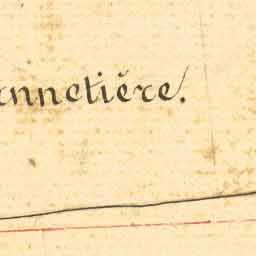 annetière.